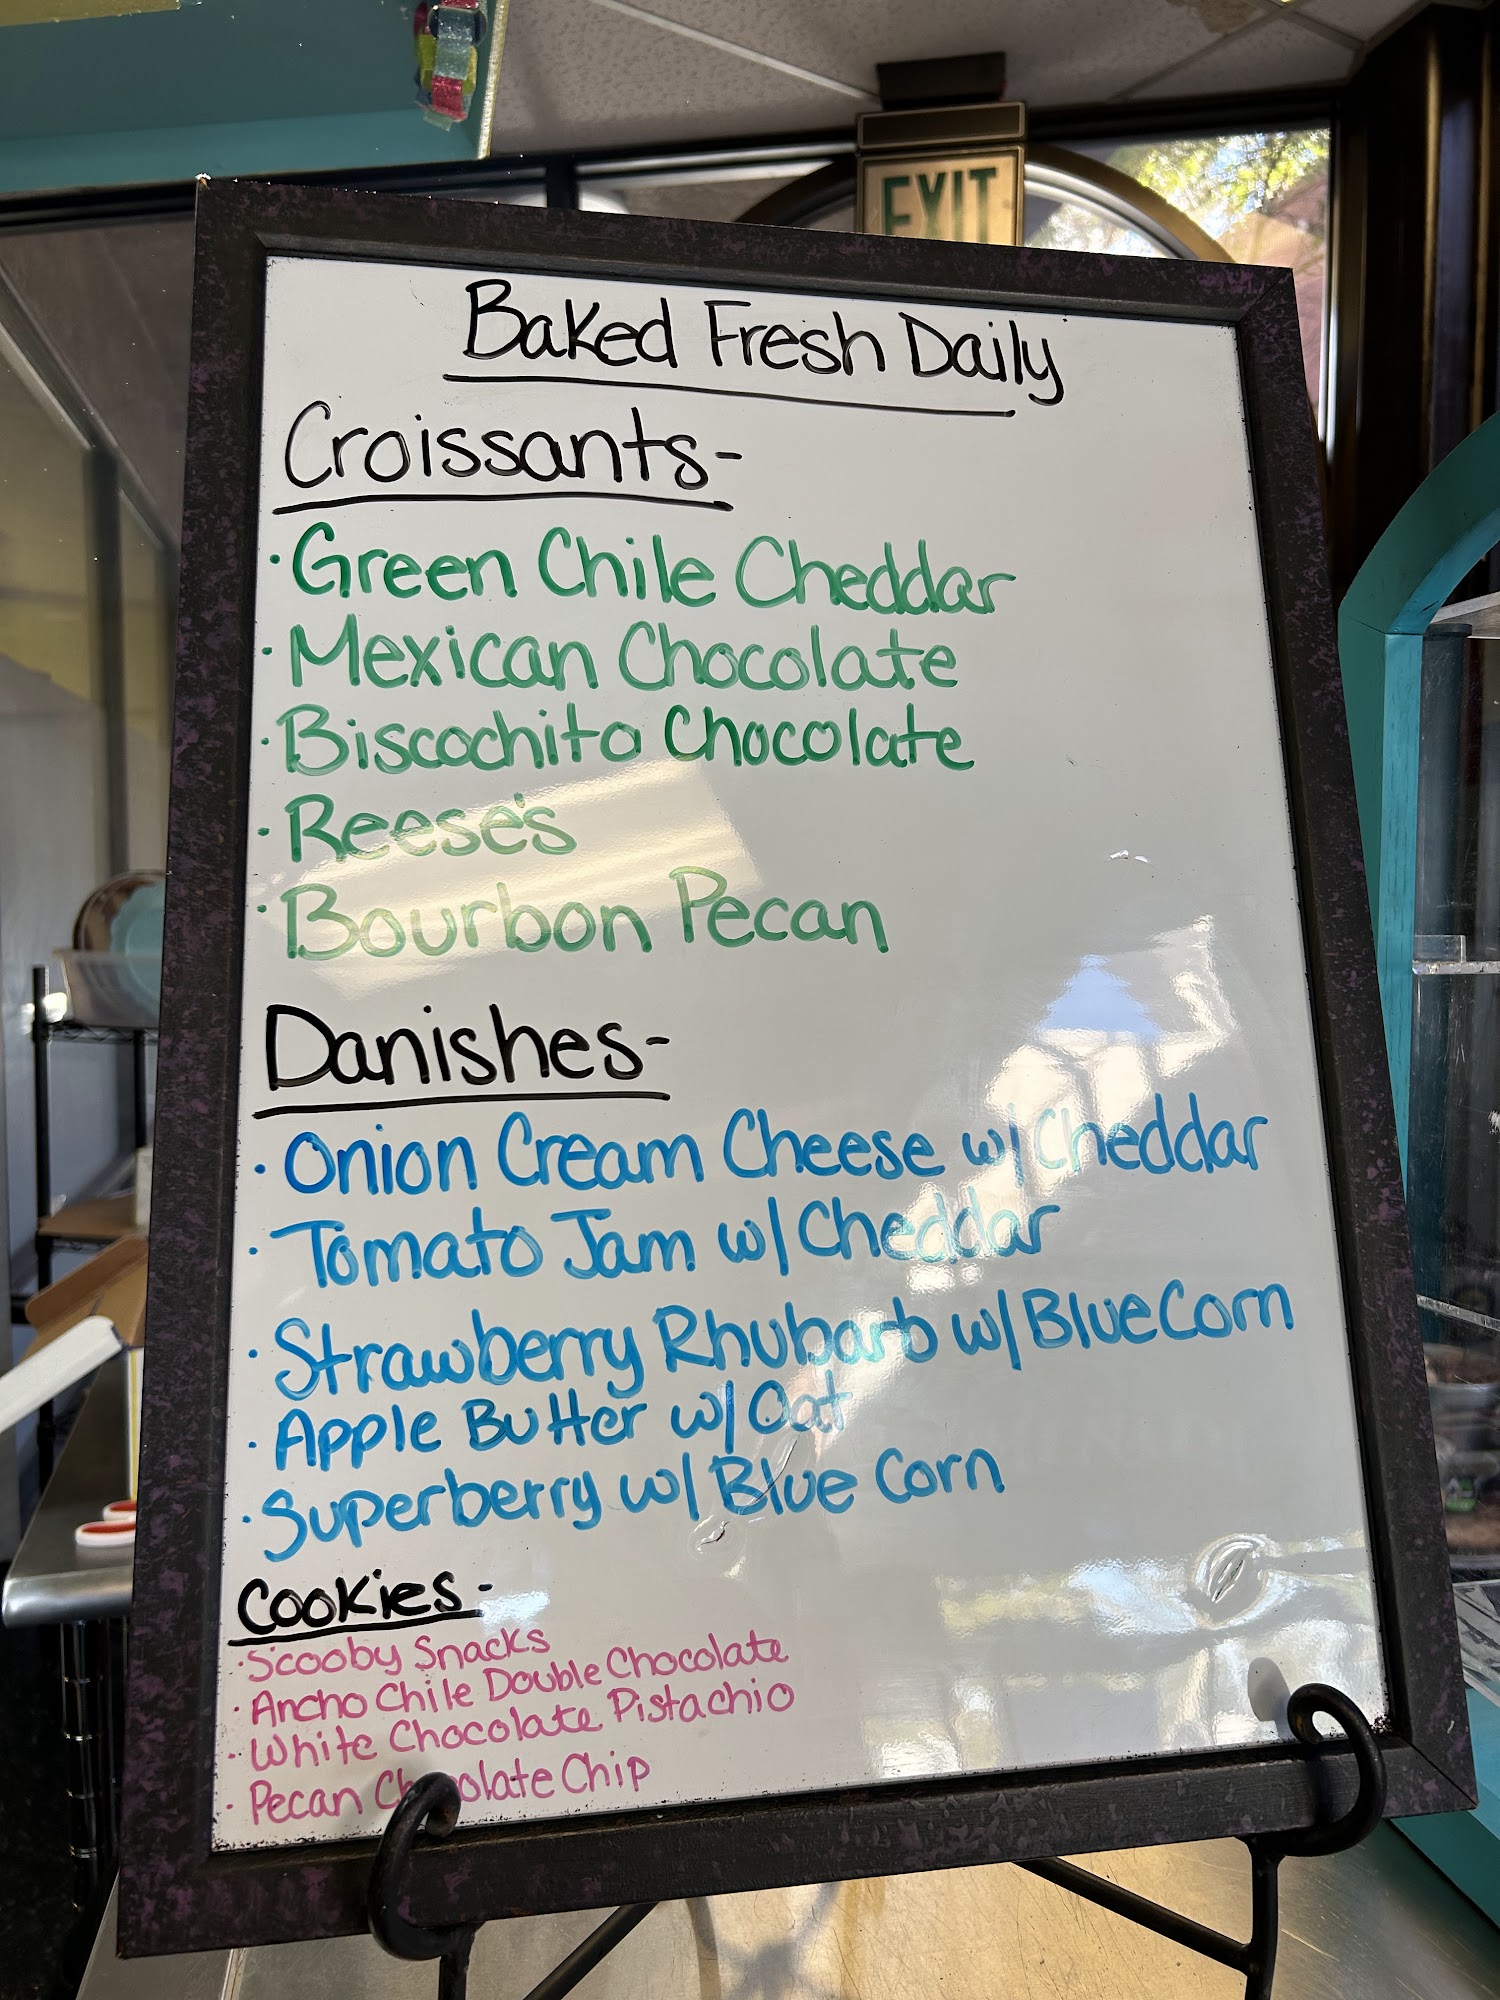 EXIT
Baked Fresh Daily
Croissants-
· Green Chile Cheddar
· Mexican Chocolate
· Biscochito Chocolate
· Reese's
· Bourbon Pecan
Danishes-
· Onion Cream Cheese w/ Cheddar
· Tomato Jam w/ Cheddar
· Strawberry Rhubarb w/ Blue Corn
· Apple Butter w/ Oat
· Superberry w/ Blue Corn
Cookies-
· Scooby Snacks
· Ancho Chile Double Chocolate
· White Chocolate Pistachio
· Pecan Chocolate Chip